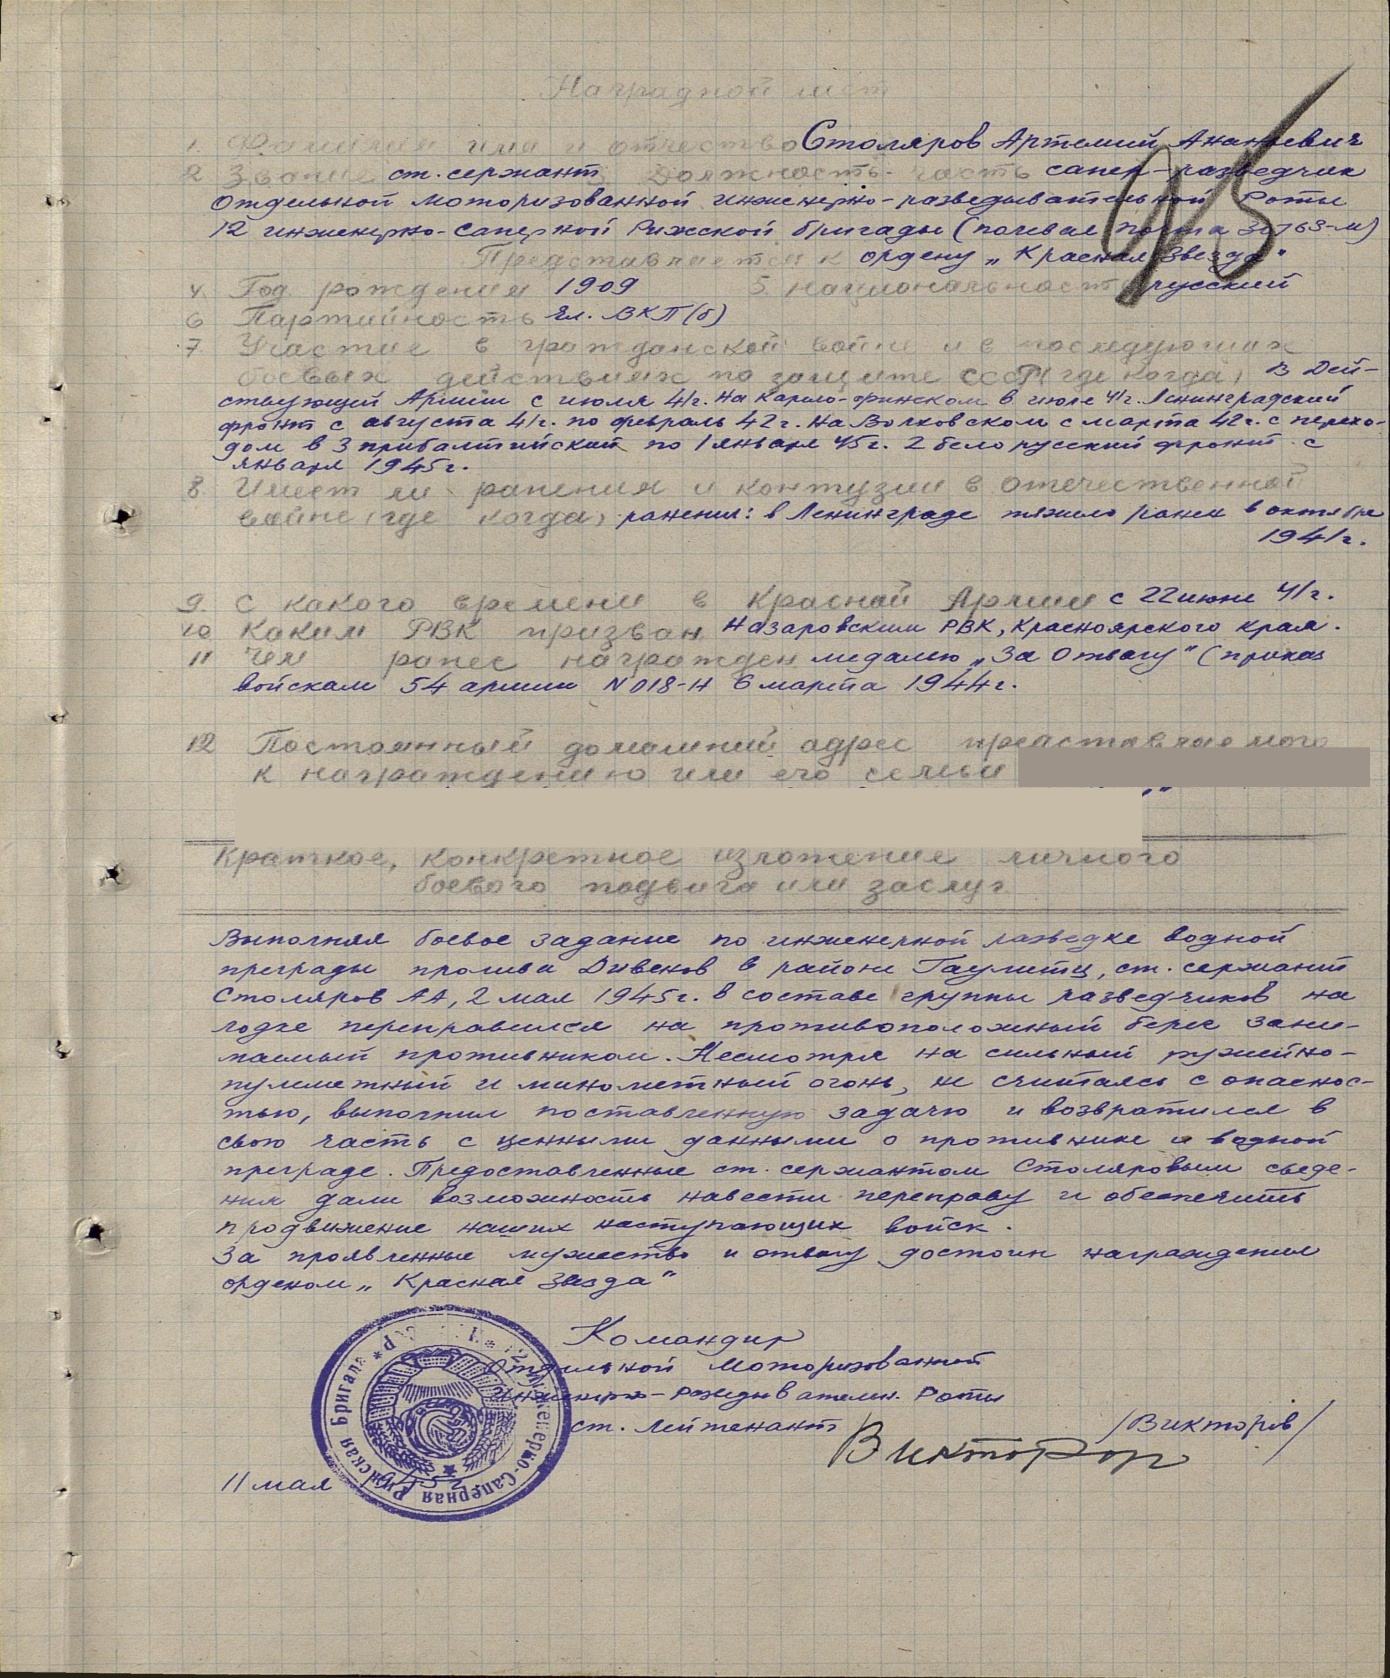 Наградной лист
1. Фамилия имя и отчество Столяров Артемий Ананьевич
2 Звание ст. сержант, 3 Должность, часть сапер-разведчик
отдельной моторизованной инженерно-разведывательной Роты
12 инженерно-саперной Рижской бригады (полевая почта м)
Представляется к ордену „Красная Звезда"
4. Год рождения 1909 5. национальность русский
6 Партийность чл. ВКП(б)
7 Участие в гражданской войне и в последующих
боевых действиях по защите СССР (где когда) В Дей-
ствующей Армии с июля 41г. на Карело-финском в июле 41г. Ленинградский
фронт с августа 41г. по февраль 42г. На Волховском с марта 42г. с перехо-
дом в 3 прибалтийский по 1 января 45г. 2 белорусский фронт с
января 1945г.
8 Имеет ли ранения и контузии в отечественной
войне (где когда) ранения: в Ленинграде тяжело ранен в октябре
1941г.
9. С какого времени в Красной Армии с 22 июня 41г.
10 Каким РВК призван Назаровским РВК, Красноярского края.
11 Чем ранее награжден медалью „За Отвагу" (приказ
войскам 54 армии N018-Н 6 марта 1944г.
12 Постоянный домашний адрес представляемого
к награждению или его семьи
Краткое, конкретное изложение личного
боевого подвига или заслуг
Выполняя боевое задание по инженерной разведке водной
преграды пролива Дивенов в районе Гаулитц, ст. сержант
Столяров АА, 2 мая 1945г. в составе группы разведчиков на
лодке переправился на противоположный берег зани-
маемый противником. Несмотря на сильный ружейно-
пулеметный и минометный огонь, не считаясь с опаснос-
тью, выполнил поставленную задачу и возвратился в
свою часть с ценными данными о противнике и водной
преграде. Предоставленные ст. сержантом Столяровым сведе-
ния дали возможность навести переправу и обеспечить
продвижение наших наступающих войск.
За проявленные мужество и отвагу достоин награждения
орденом „Красная Звезда"
Командир
отдельной Моторизованной
Инженерно-Разведывателн. Роты
ст. Лейтенант Викторов /Викторов/
11 мая 1945г
12 Инженерно-Саперная Рижская Бригада